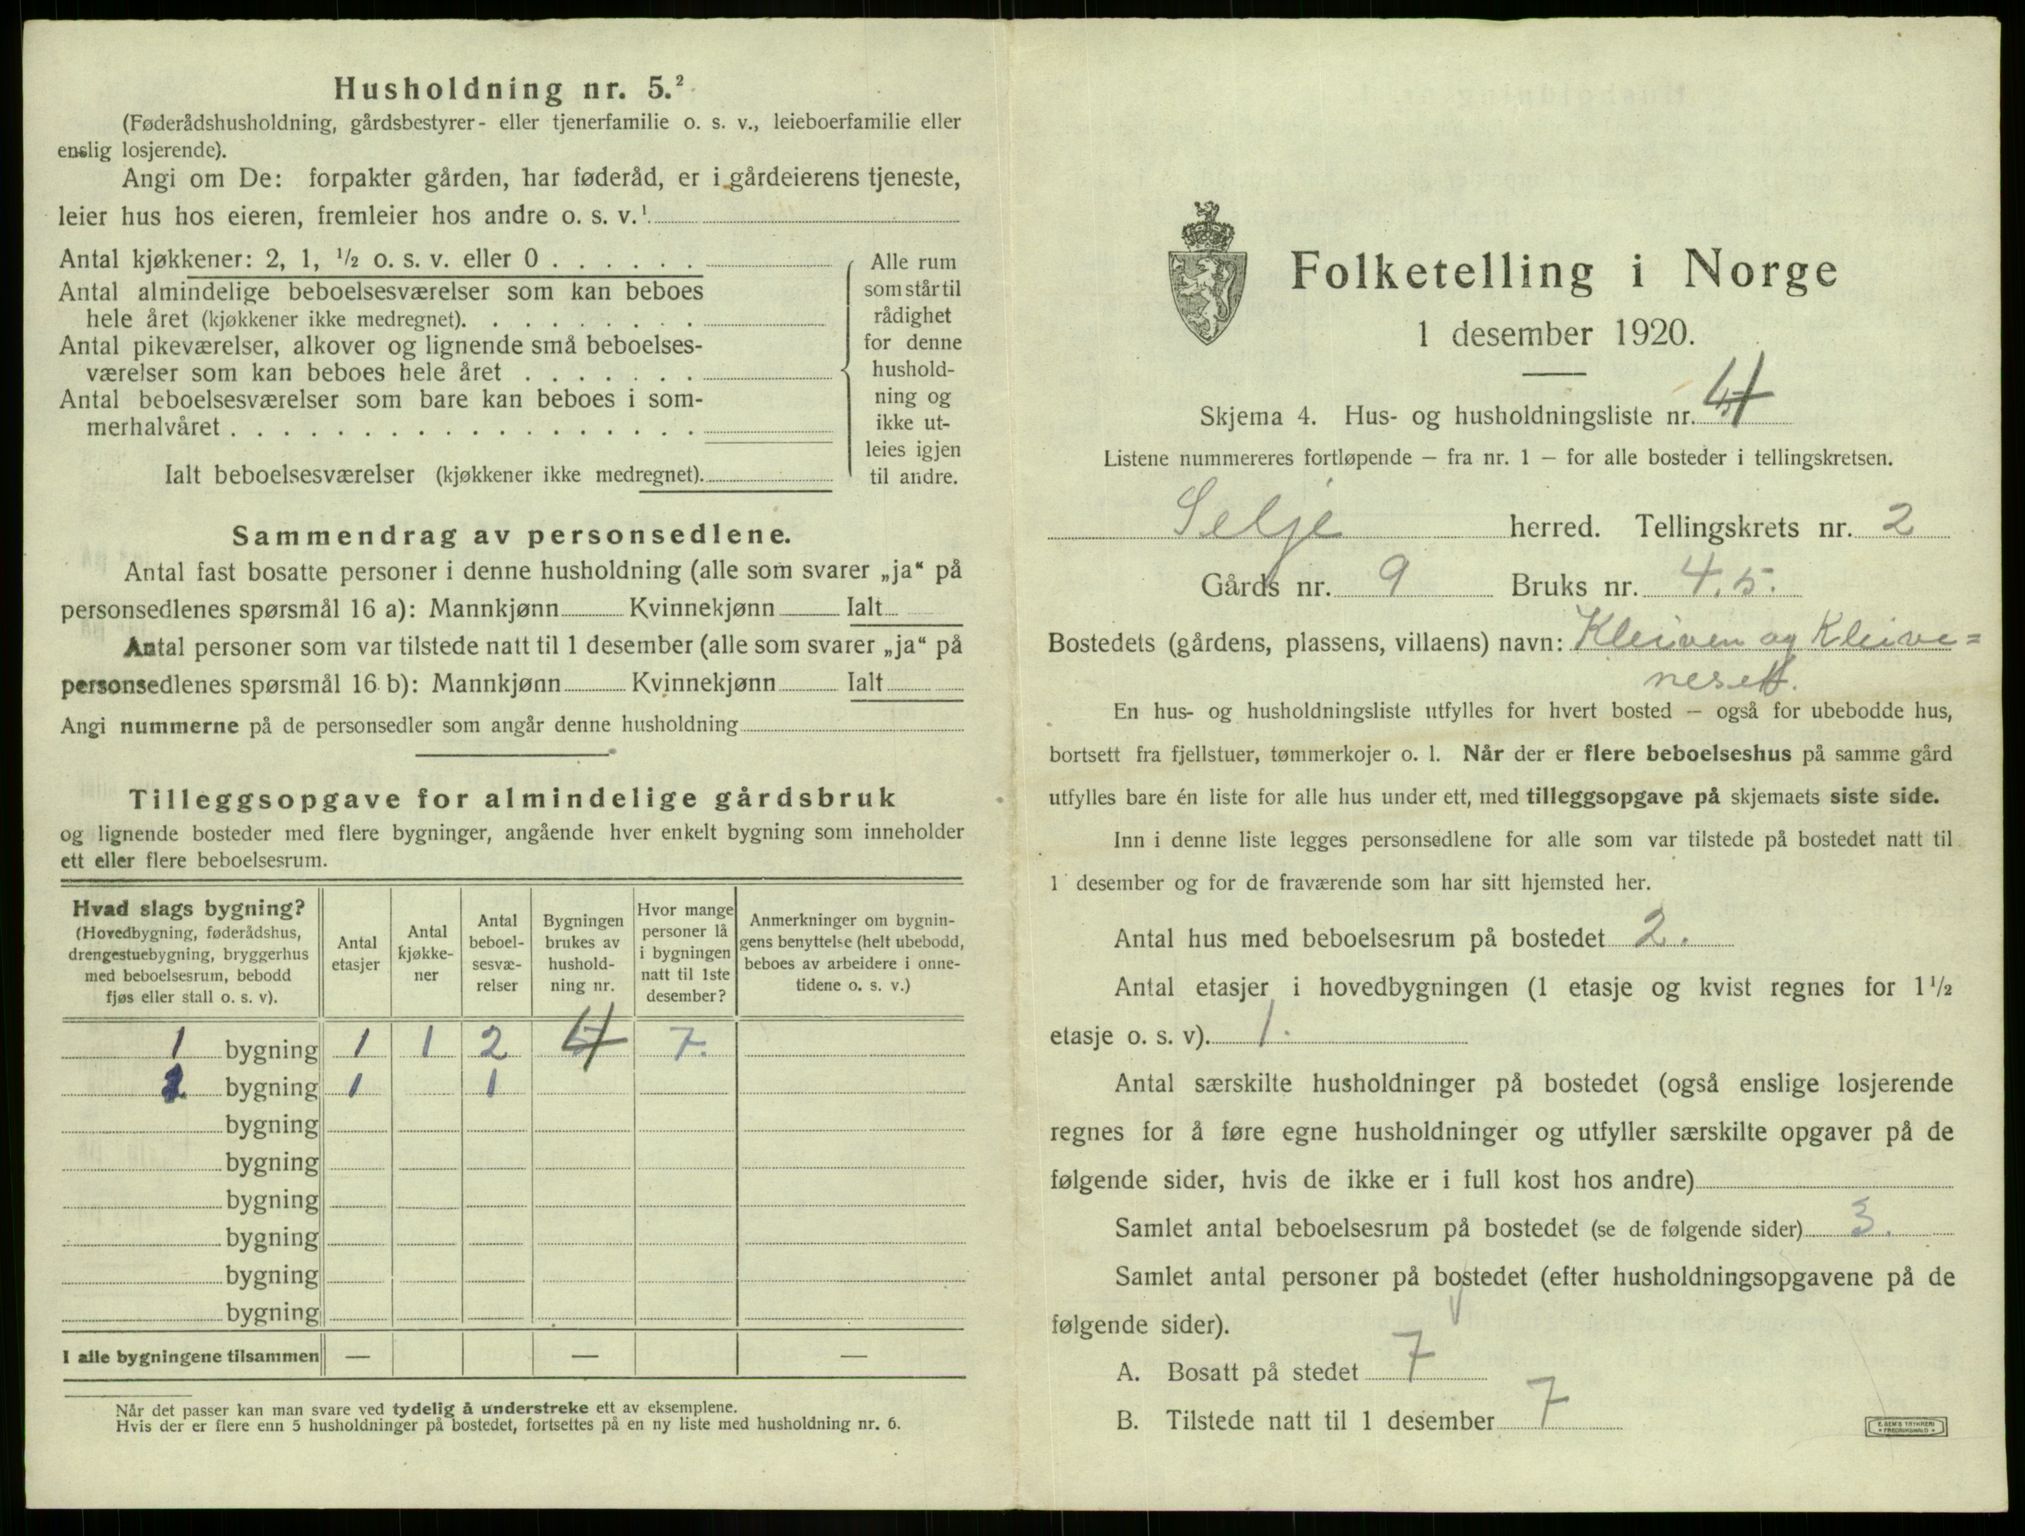 Husholdning nr. 5.²
(Føderådshusholdning, gårdsbestyrer- eller tjenerfamilie o. s. v., leieboerfamilie eller
enslig losjerende).
Angi om De: forpakter gården, har føderåd, er i gårdeierens tjeneste,
leier hus hos eieren, fremleier hos andre o. s. v.¹
Antal kjøkkener: 2, 1, ½ o. s. v. eller 0 . . . . . .
Antal almindelige beboelsesværelser som kan beboes
hele året (kjøkkener ikke medregnet). . . . . . . . .
Antal pikeværelser, alkover og lignende små beboelses-
værelser som kan beboes hele året . . . . . . .
Antal beboelsesværelser som bare kan beboes i som-
merhalvåret . . . . . . . . . . . . . . . . . .
Ialt beboelsesværelser (kjøkkener ikke medregnet).
Alle rum
som står til
rådighet
for denne
hushold-
ning og
ikke ut-
leies igjen
til andre.
Sammendrag av personsedlene.
Antal fast bosatte personer i denne husholdning (alle som svarer „ja“ på
personsedlenes spørsmål 16 a): Mannkjønn Kvinnekjønn Ialt
Antal personer som var tilstede natt til 1 desember (alle som svarer „ja“ på
personsedlenes spørsmål 16 b): Mannkjønn Kvinnekjønn Ialt
Angi nummerne på de personsedler som angår denne husholdning
Tilleggsopgave for almindelige gårdsbruk
og lignende bosteder med flere bygninger, angående hver enkelt bygning som inneholder
ett eller flere beboelsesrum.
Hvad slags bygning?
(Hovedbygning, føderådshus,
drengestuebygning, bryggerhus
med beboelsesrum, bebodd
fjøs eller stall o. s. v).
Antal
etasjer
Antal
kjøkke-
ner
Antal
beboel-
sesvæ-
relser
Bygningen
brukes av
hushold-
ning nr.
Hvor mange
personer lå
i bygningen
natt til 1ste
desember?
Anmerkninger om bygnin-
gens benyttelse (helt ubebodd,
beboes av arbeidere i onne-
tidene o. s. v.)
1 bygning 1 1 2 4 7.
2 bygning 1 1
bygning
bygning
bygning
bygning
bygning
bygning
I alle bygningene tilsammen — — —
Når det passer kan man svare ved tydelig å understreke ett av eksemplene.
Hvis der er flere enn 5 husholdninger på bostedet, fortsettes på en ny liste med husholdning nr. 6.
Folketelling i Norge
1 desember 1920.
Skjema 4. Hus- og husholdningsliste nr. 4
Listene nummereres fortløpende – fra nr. 1 – for alle bosteder i tellingskretsen.
Selje herred. Tellingskrets nr. 2
Gårds nr. 9 Bruks nr. 4.5.
Bostedets (gårdens, plassens, villaens) navn: Kleiven og Kleive=
neset.
En hus- og husholdningsliste utfylles for hvert bosted – også for ubebodde hus,
bortsett fra fjellstuer, tømmerkojer o. l. Når der er flere beboelseshus på samme gård
utfylles bare én liste for alle hus under ett, med tilleggsopgave på skjemaets siste side.
Inn i denne liste legges personsedlene for alle som var tilstede på bostedet natt til
1 desember og for de fraværende som har sitt hjemsted her.
Antal hus med beboelsesrum på bostedet 2.
Antal etasjer i hovedbygningen (1 etasje og kvist regnes for 1½
etasje o. s. v). 1.
Antal særskilte husholdninger på bostedet (også enslige losjerende
regnes for å føre egne husholdninger og utfyller særskilte opgaver på de
følgende sider, hvis de ikke er i full kost hos andre)
Samlet antal beboelsesrum på bostedet (se de følgende sider) 3.
Samlet antal personer på bostedet (efter husholdningsopgavene på de
følgende sider).
A. Bosatt på stedet 7
B. Tilstede natt til 1 desember 7
E. SEM'S TRYKKERI
* FREDRIKSHALD *